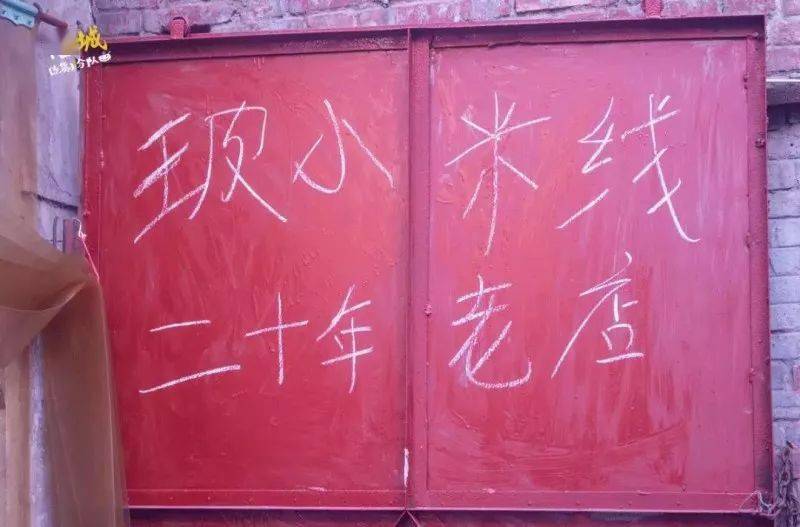 城
玻小米线
二十年老店